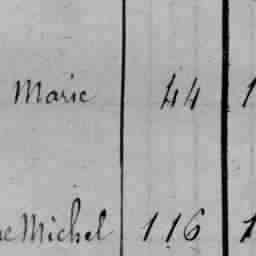 Marie 44 1
Michel 116 1